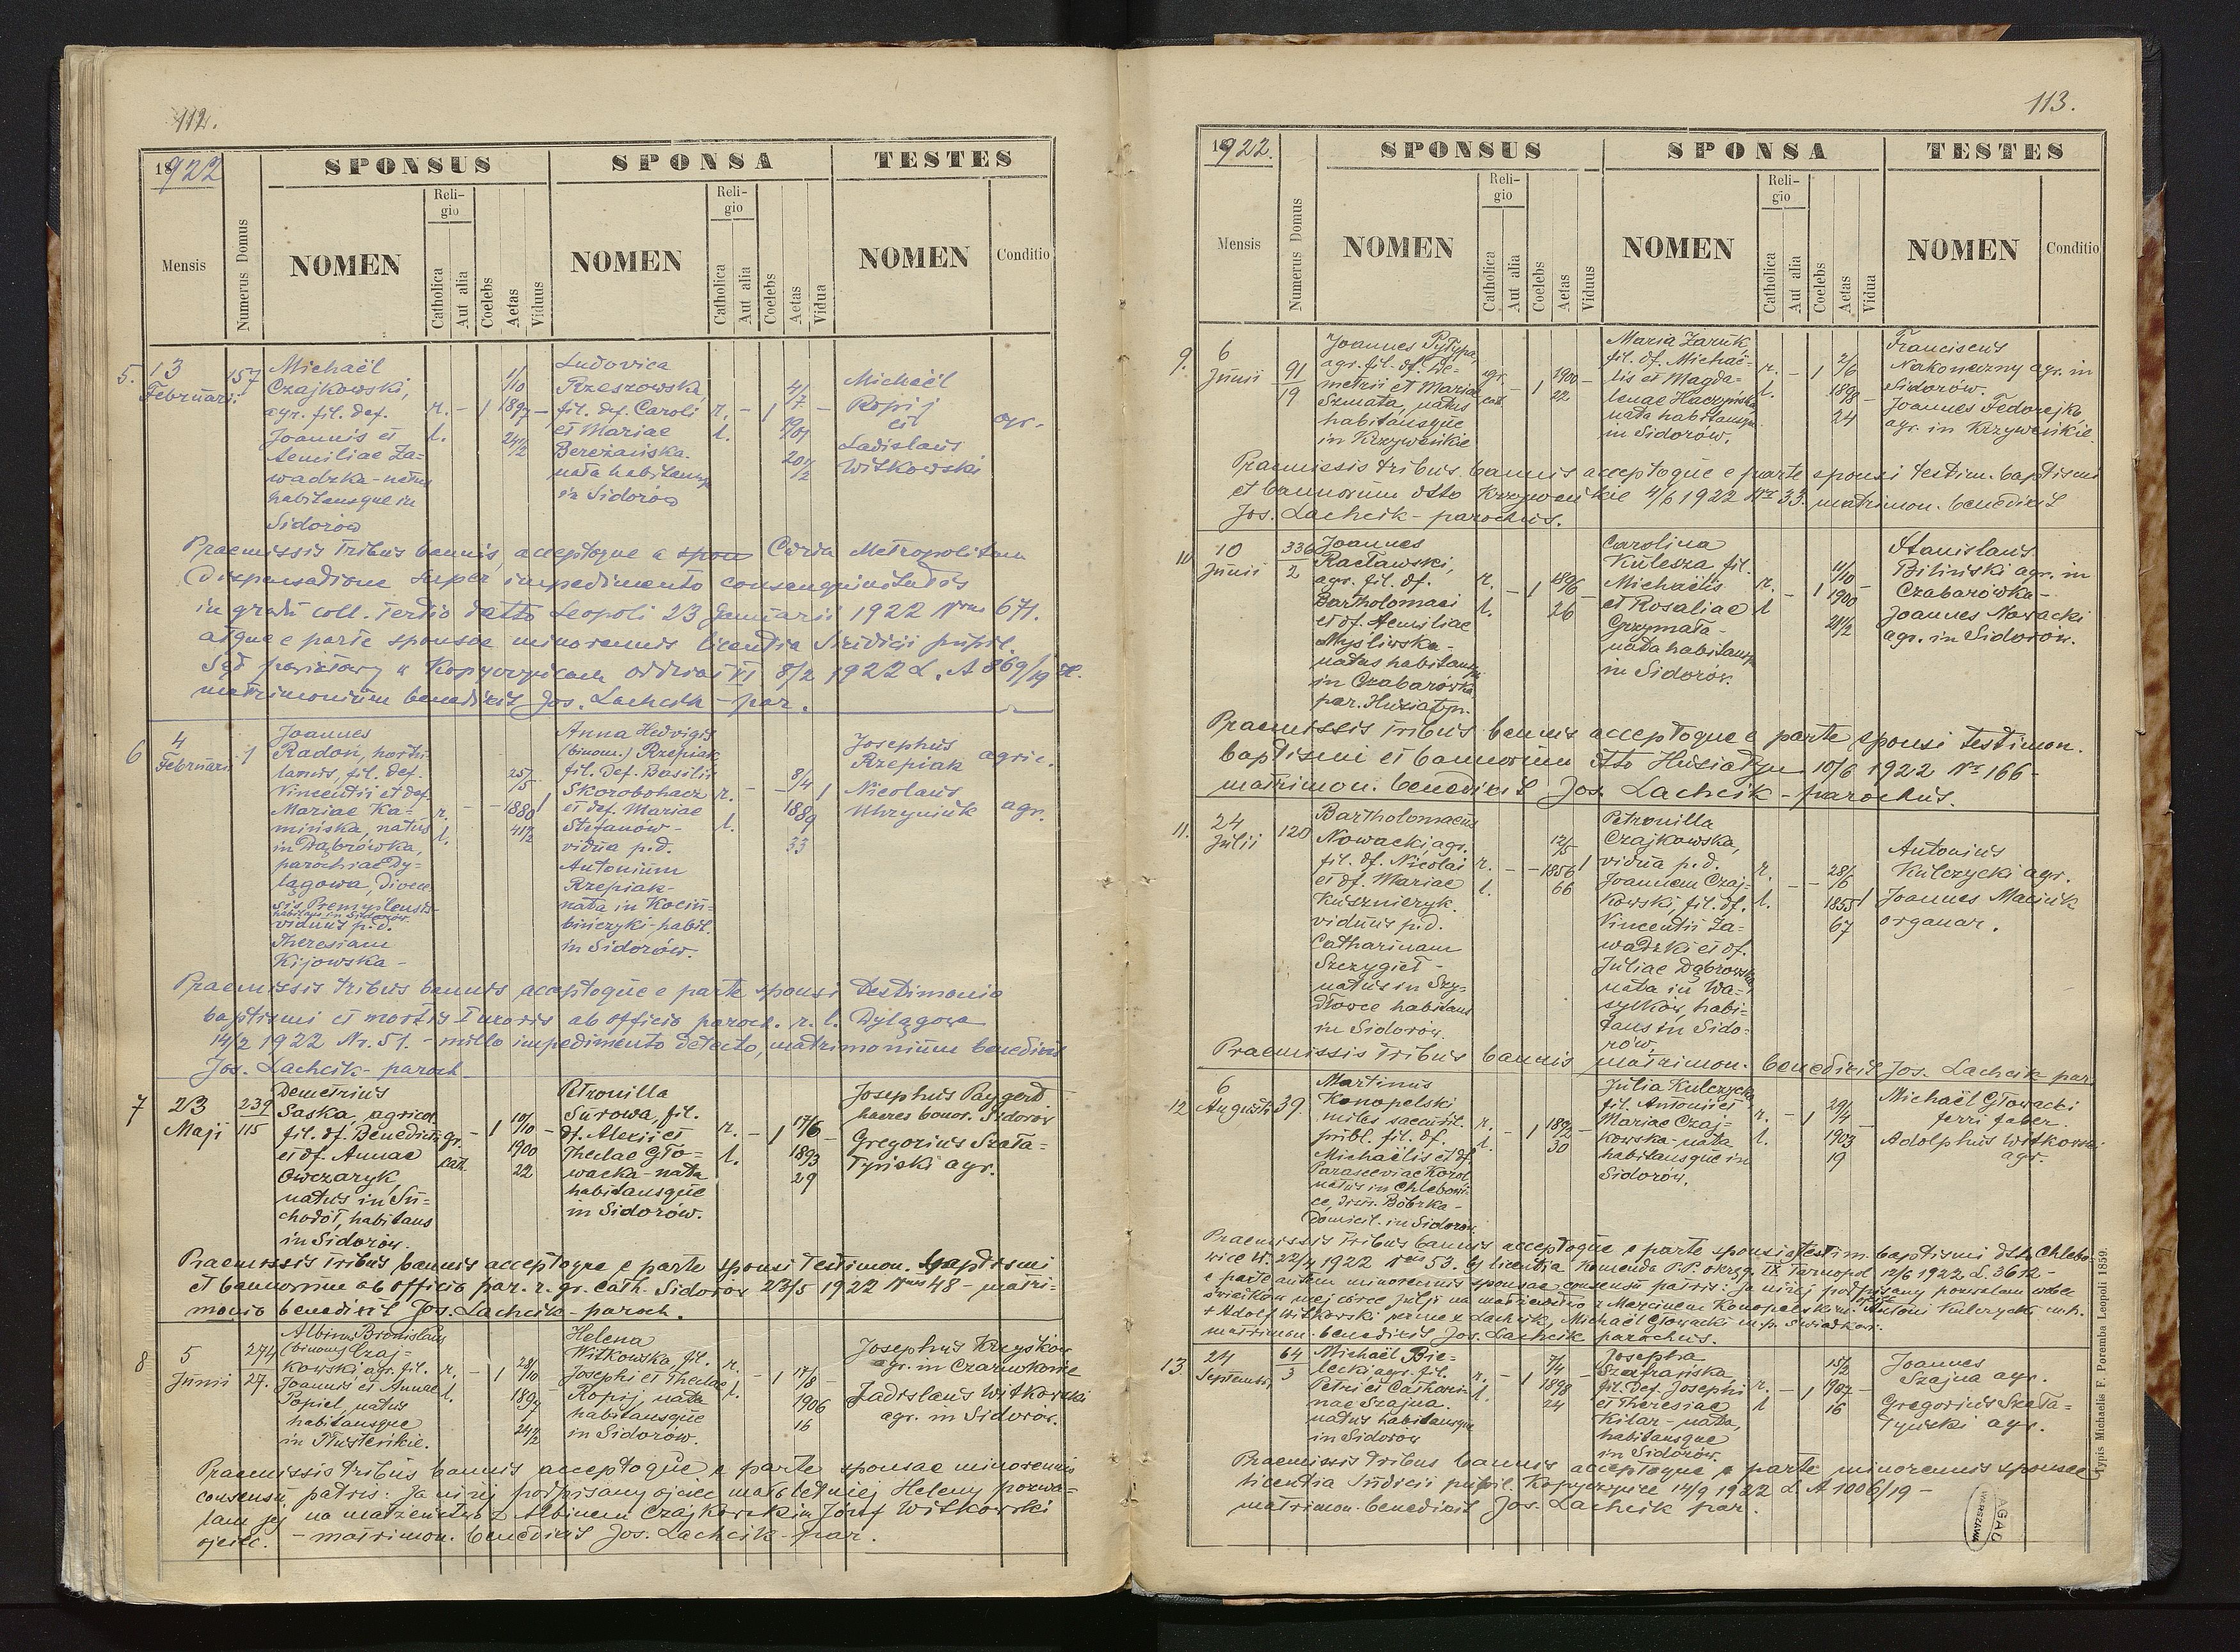 112.
1922
SPONSUS
SPONSA
TESTES
Mensis
Numerus Domus
NOMEN
Religio
Catholica
Aut alia
Coelebs
Aetas
Viduus
NOMEN
Religio
Catholica
Aut alia
Coelebs
Aetas
Vidua
NOMEN
Conditio
5. 13
Februarii
157
Michaël
Czajkowski,
agr. fil. def.
Joannis et
Aemiliae Za=
wadzka - natus
habitansque in
Sidorów
r. l. - 1
1/10
1897
24 1/2
-
Ludovica
Rzeszowska,
fil. def. Caroli
et Mariae
Bereżańska
nata habitansque
in Sidorów
r. l. - 1
4/7
1901
20 1/2
-
Michaël
Ropij
et
Ladislaus
Witkowski
agr.
Praemissis tribus bannis, acceptoque a Curia Metropolitana
dispensatione super impedimento consanguinitatis
in gradu coll. tertio datto Leopoli 23 Januarii 1922 Nrus 671.
atque e parte sponsae minorennis licentia Iudicii pupil.
Sąd powiatowy w Kopyczyńcach oddział VI 8/2 1922 L. A 869/19
matrimonium benedixit Jos. Lachcik - par.
6
4
Februarii
1
Joannes
Radoń, hortu
lanus, fil. def.
Vincentii et def.
Mariae Ka-
mińska, natus
in Dąbrówka,
parochiae Dy-
lągowa, Dioece
sis Premyslensis
habitans in Sidorów
viduus p.d.
Theresiam
Kijowska -
r. l. - -
25/5
1880
41 1/2
1
Anna Hedvigis
(binom.) Rzepiak
fil. def. Basilii
Skorobohacz
et def. Mariae
Stefanów -
vidua p.d.
Antonium
Rzepiak -
nata in Kociu=
bińczyki - habit.
in Sidorów.
r. l. - -
8/4
1889
33
1
Josephus
Rzepiak
agric.
Nicolaus
Uhryniuk
agr.
Praemissis tribus bannis acceptoque e parte sponsi testimonio
baptismi et mortis Iuxoris ab officio paroch. r. l. Dylągowa
14/2 1922 Nr. 51. - nullo impedimento detecto, matrimonium benedixit
Jos. Lachcik - paroch.
7
23
Maji
239
115
Demetrius
Saska, agricol.
fil. df. Benedicti
et df. Annae
Owczaryk,
natus in Su=
chodół, habitans
in Sidorów.
gr. cath. - 1
10/10
1900
22
-
Petronilla
Surowa, fil.
df. Alexii et
Theclae Gło=
wacka - nata
habitansque
in Sidorów.
r. l. - 1
17/6
1893
29
-
Josephus Paygerd
haeres bonor. Sidorów
Gregorius Szała=
tyński agr.
Praemissis tribus bannis acceptoque e parte sponsi testimon. baptismi
et bannorum ab officio par. r. gr. cath. Sidorów 23/5 1922 Nrus 48 - matri=
monio benedixit Jos. Lachcik - paroch.
8
5
Junii
274
27.
Albinus Bronislaus
(binomy) Czaj=
kowski agr. fil.
Joannis et Annae
Popiel, natus
habitansque
in Tłusteńkie.
r. l. - 1
28/10
1897
24 1/2
-
Helena
Witkowska, fil.
Josephi et Theclae
Ropij, nata
habitansque
in Sidorów.
r. l. - 1
17/8
1906
16
-
Josephus Kruyśków
agr. in Czarnokońce
Ladislaus Witkowski
agr. in Sidorów.
Praemissis tribus bannis acceptoque e parte sponsae minorennis
consensu patris: Ja niżej podpisany ojciec małoletniej Heleny pozwa=
lam jej na małżeństwo z Albinem Czajkowskim Józef Witkowski
ojciec. - matrimon. benedixit Jos. Lachcik - par.
113.
1922.
SPONSUS
SPONSA
TESTES
Mensis
Numerus Domus
NOMEN
Religio
Catholica
Aut alia
Coelebs
Aetas
Viduus
NOMEN
Religio
Catholica
Aut alia
Coelebs
Aetas
Vidua
NOMEN
Conditio
9.
6
Junii
91
19
Joannes Pyłypa,
agr. fil. df. De=
metrii et Mariae
Szmata, natus
habitansque
in Krzyweńkie
gr. cat. - 1
1900
22
-
Maria Zaruk
fil. df. Michaë=
lis et Magda=
lenae Haczyńska,
nata habitansque
in Sidorów.
r. l. - 1
2/6
1898
24
-
Franciscus
Nakoneczny agr. in
Sidorów.
Joannes Fedorejko
agr. in Krzyweńkie.
Praemissis tribus bannis acceptoque e parte sponsi testim. baptismi
et bannorum dtto Krzyweńkie 4/6 1922 Nr 33. matrimon. benedixit
Jos. Lachcik - parochus.
10
10
Junii
336
2
Joannes
Racławski,
agr. fil. df.
Bartholomaei
et df. Aemiliae
Myśliwska -
natus habitansque
in Czabarówka
par. Husiatyn.
r. l. - 1
1896
26
-
Carolina
Kulesza fil.
Michaëlis
et Rosaliae
Grzymała -
nata habitansque
in Sidorów.
r. l - 1
11/10
1900
21 1/2
-
Stanislaus
Biliński agr. in
Czabarówka -
Joannes Nowacki
agr. in Sidorów.
Praemissis tribus bannis acceptoque e parte sponsi testimon.
baptismi et bannorum dtto Husiatyn 10/6 1922 Nr 166 -
matrimon. benedixit Jos. Lachcik - parochus.
11.
24
Julii
120
Bartholomaeus
Nowacki, agr.
fil. df. Nicolai
et df. Mariae
Kuszmieryk.
viduus p.d.
Catharinam
Szczygieł -
natus in Szy=
dłowce habitans
in Sidorów.
r. l. - -
12/5
1856
66
1
Petronilla
Czajkowska,
vidua p.d.
Joannem Czaj=
kowski, fil. df.
Vincentii Za=
wadzki et df.
Juliae Dąbrowska,
nata in Wa=
sylków, habi=
tans in Sido=
rów.
r. l. - -
28/6
1855
67
1
Antonius
Kulczycki agr.
Joannes Maciuk
organar.
Praemissis tribus bannis matrimon. benedixit Jos. Lachcik par.
12
6
Augusti
39.
Martinus
Konopelski
miles
publ. fil. df.
Michaëlis et df.
Parasceviae Korol
natus in Chlebowi=
ce, distr. Bóbrka -
domicil. in Sidorów
r. l. - 1
1892
30
-
Julia Kulczycka
fil. Antonii et
Mariae Czaj=
kowska - nata
habitansque in
Sidorów.
r. l. - 1
29/4
1903
19
-
Michaël Głowacki
ferri faber.
Adolphus Witkowski
agr.
Praemissis tribus bannis acceptoque e parte sponsi testim. baptismi dtto Chlebo=
wice W. 22/7 1922 Nrus 53. et licentia Komenda P.P. okręg. IX Tarnopol 12/6 1922 L. 3612 -
e parte autem minorennis sponsae consensu patris: Ja niżej podpisany pozwalam wobec
świadków mej córce Julji na małżeństwo z Marcinem Konopelskim. ojciec Antoni Kulczycki m.p.
+ Adolf Witkowski Lachcik, Michaël Głowacki m.p. świadkowie.
matrimon. benedixit Jos. Lachcik parochus.
13.
24
Septembris
64
3
Michaël Bie=
lecki agr. fil.
Petri et Cathari=
nae Szajna.
natus habitansque
in Sidorów
r. l. - 1
7/4
1898
24
-
Josepha
Szafrańska,
fil. def. Josephi
et Theresiae
Kilar - nata,
habitansque
in Sidorów.
r. l - 1
15/2
1907
16
-
Joannes
Szajna agr.
Gregorius Szała=
tyński agr.
Praemissis tribus bannis acceptoque e parte minorennis sponsae
licentia Iudicii pupil. Kopyczyńce 14/9 1922 L. A 1006/19 -
matrimon. benedixit Jos. Lachcik par.
Typis Michaelis F. Poremba Leopoli 1859.
AGAD
WARSZAWA